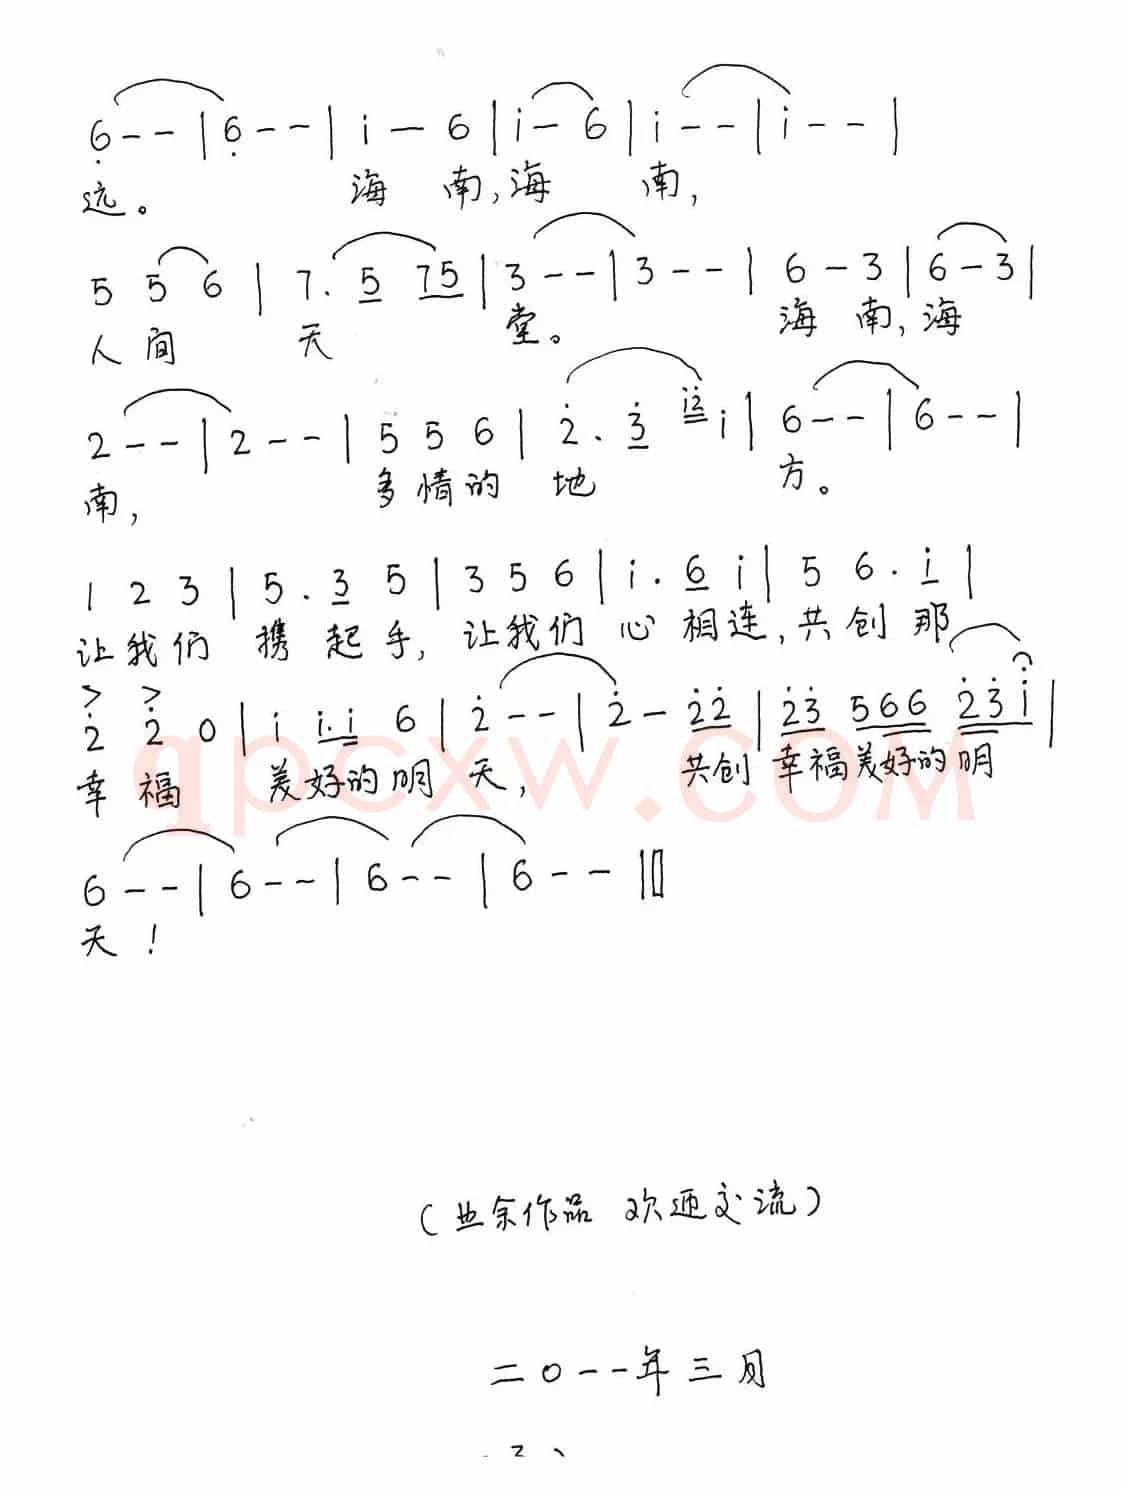 6̣ - - | 6̣ - - | i — 6 | i — 6 | i - - | i - - |
远。 海 南,海 南,
5 5 6 | 7. 5 75 | 3 - - | 3 - - | 6 - 3 | 6 - 3 |
人间 天 堂。 海 南,海
2 - - | 2 - - | 5 5 6 | 2̇. 3̇ i2̇ i | 6 - - | 6 - - |
南, 多情的 地 方。
1 2 3 | 5. 3 5 | 3 5 6 | i. 6 i | 5 6. i |
让我们 携 起 手, 让我们 心 相连,共 创 那
> >
2̇ 2̇ 0 | i i.i 6 | 2̇ - - | 2̇ - 2̇2̇ | 2̇3̇ 566 2̇3̇i |
幸 福 美好的明 天, 共创 幸福美好的明
6 - - | 6 - - | 6 - - | 6 - - ‖
天!
qpcxw.com
(业余作品 欢迎交流)
二〇一一年三月